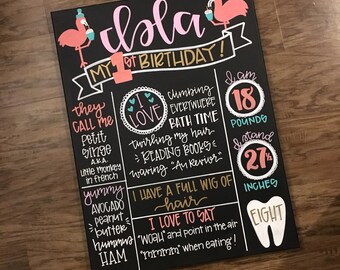 Lola
MY 1st BIRTHDAY!
they
CALL ME
PETIT
SINGE
A.K.A.
little monkey
in french
yummy
AVOCADO
peanut
butter
hummus
HAM
I
LOVE
climbing
EVERYWHERE
BATH TIME
twirling my hair
READING BOOKS
waving "Au Revior"
I HAVE A FULL WIG OF
hair
I LOVE TO SAY
"WOAH" and point in the air
"mmmm" when eating!
I am
18
POUNDS
I stand
27½
INCHES
EIGHT